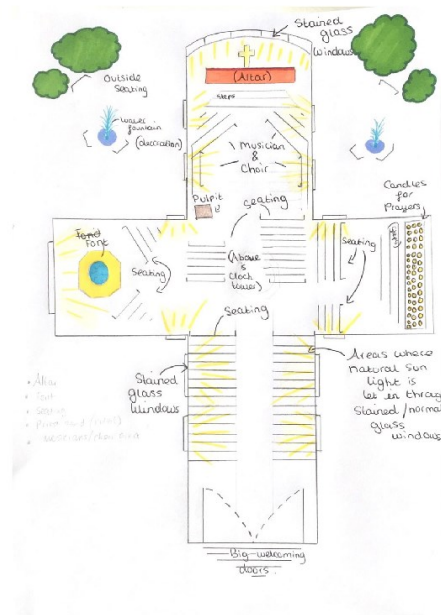 Stained
glass
windows
(Altar)
Outside
seating
steps
water
fountain
(decoration)
Musician
&
Choir
Candles
for
Prayers
Pulpit
Seating
Font
Seating
(Above
is
clock
tower)
Seating
Seating
Stained
glass
windows
Areas where
natural sun
light is
let in through
stained/normal
glass
windows
• Altar
• Font
• Seating
Big-welcoming
doors.